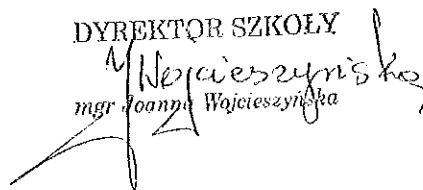 DYREKTOR SZKOŁY
J Wojcieszyńska
mgr Joanna Wojcieszyńska